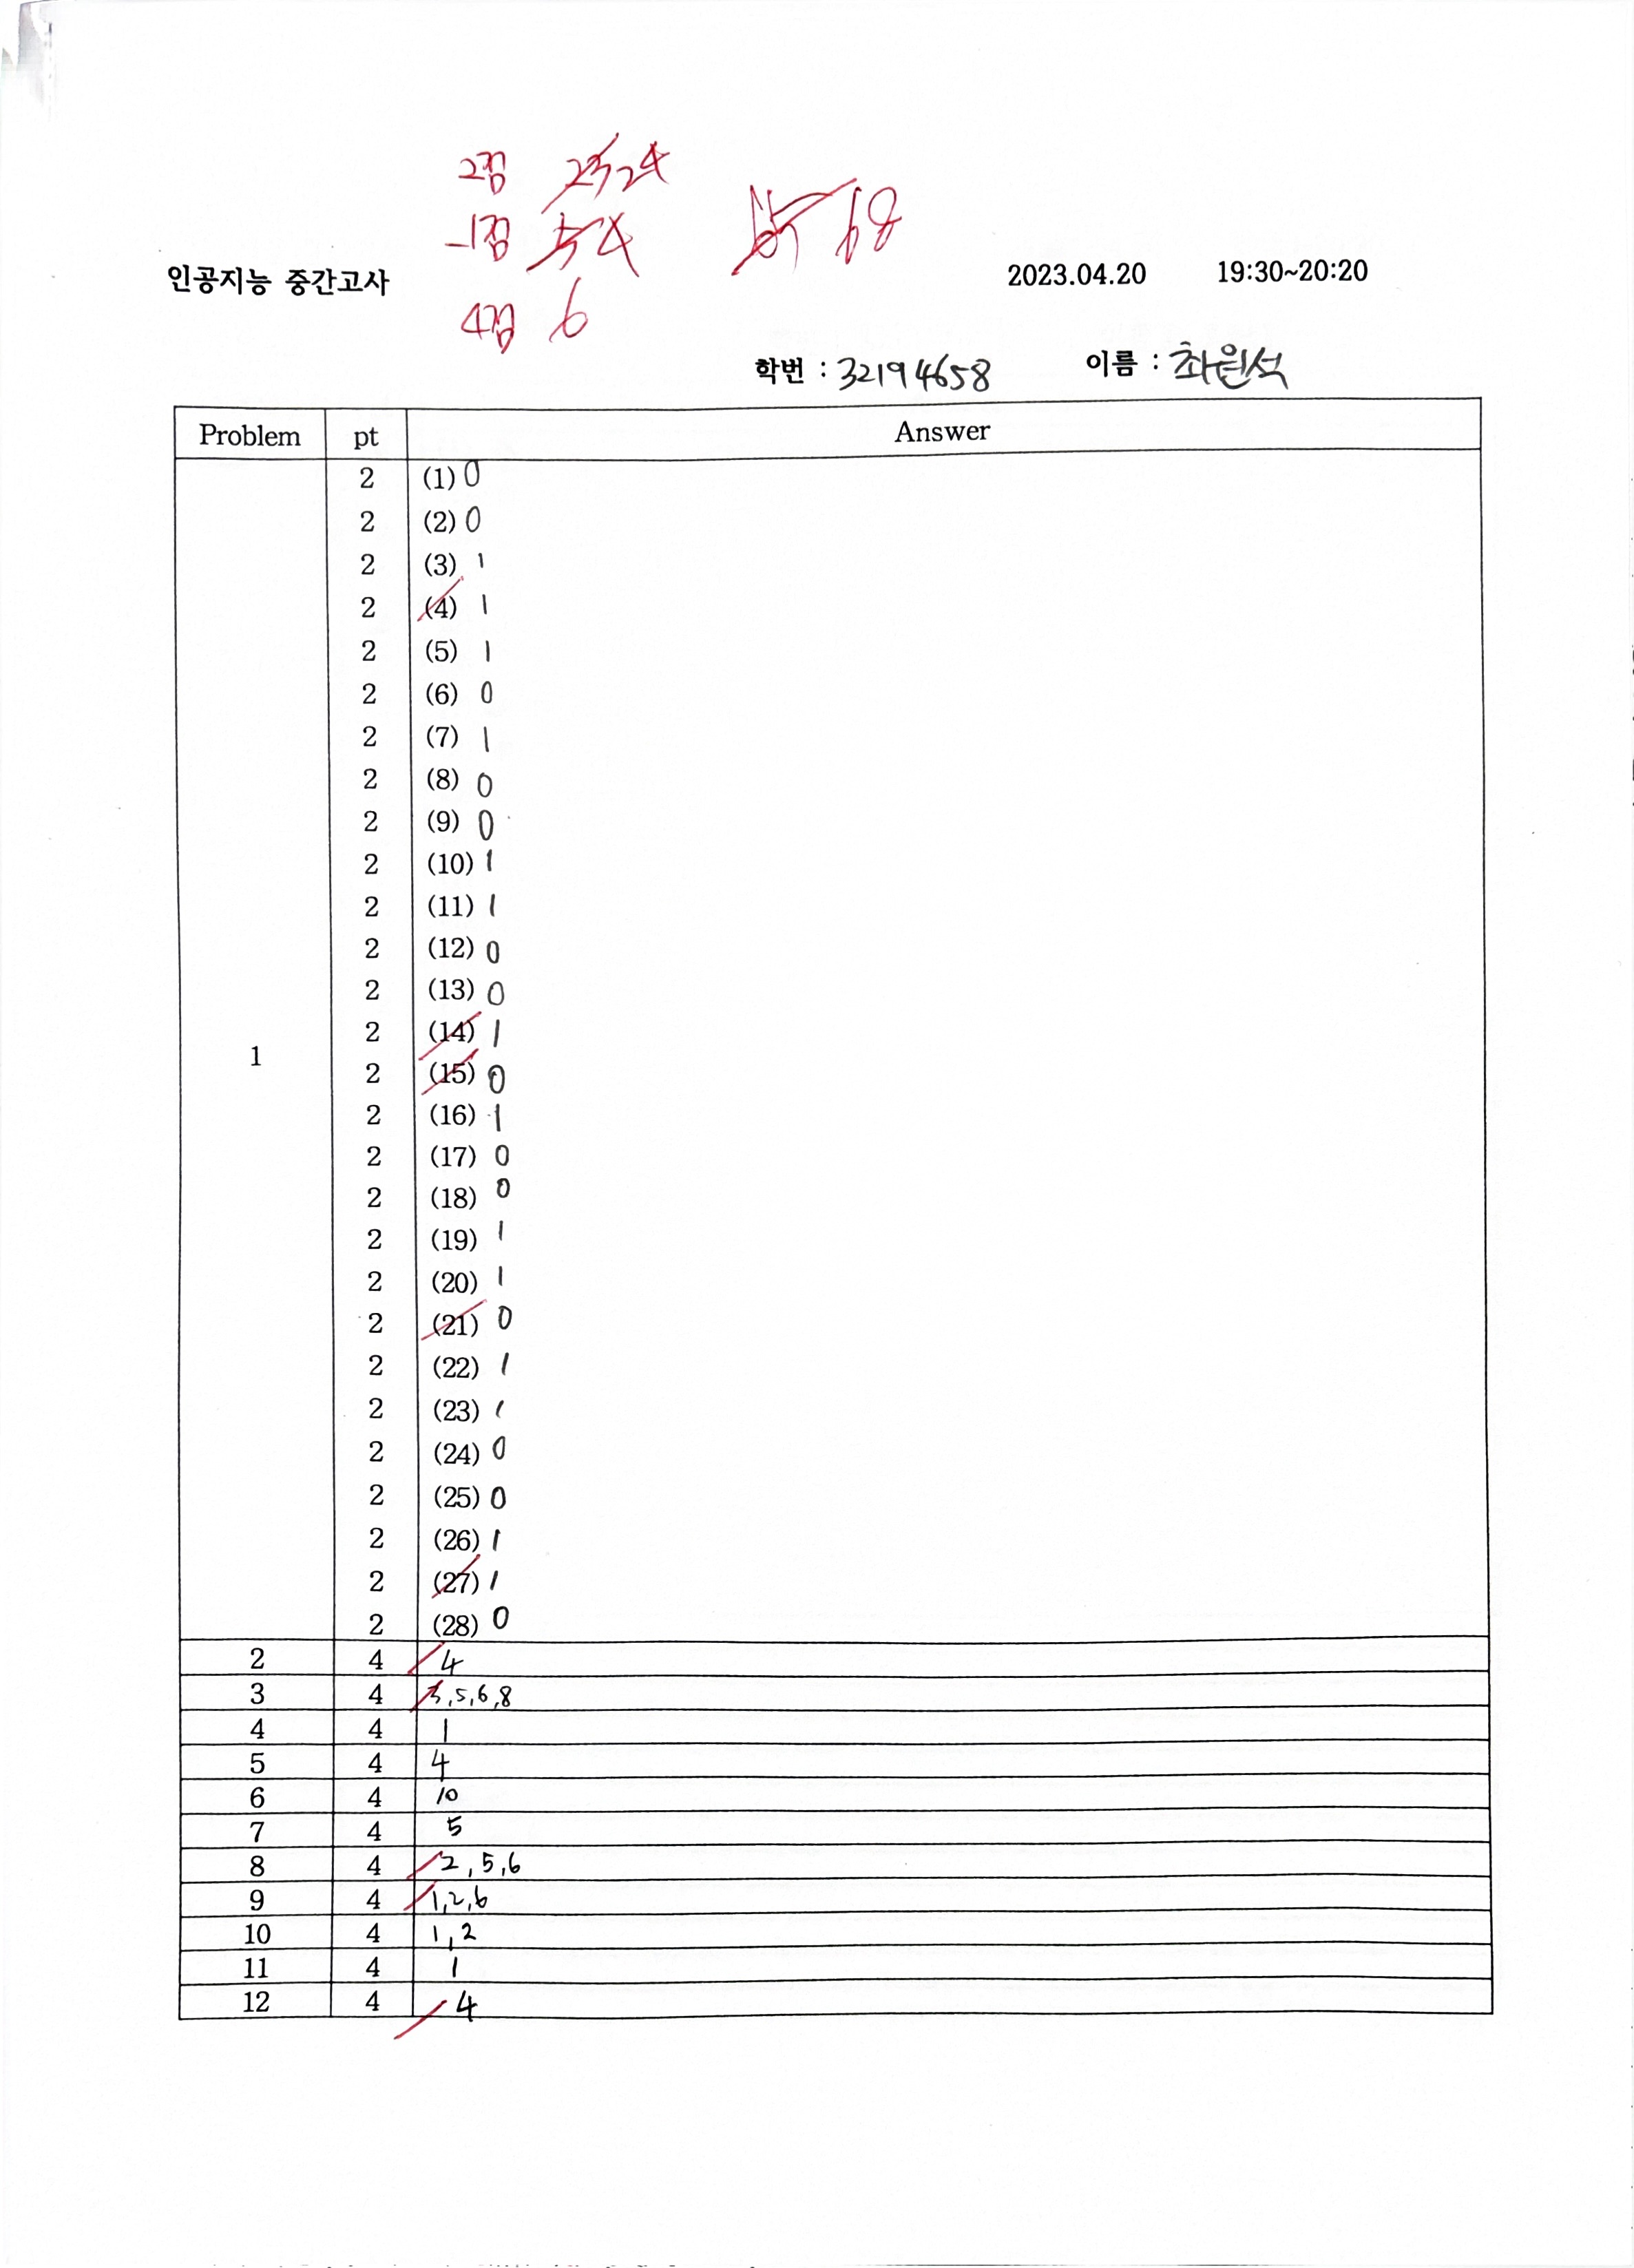 2점 23 24
-1점 5 4 65 68
인공지능 중간고사 2023.04.20 19:30~20:20
4점 6
학번 : 32194658 이름 : 최원석
Problem pt Answer
2 (1) 0
2 (2) 0
2 (3) 1
2 (4) 1
2 (5) 1
2 (6) 0
2 (7) 1
2 (8) 0
2 (9) 0
2 (10) 1
2 (11) 1
2 (12) 0
2 (13) 0
2 (14) 1
1 2 (15) 0
2 (16) 1
2 (17) 0
2 (18) 0
2 (19) 1
2 (20) 1
2 (21) 0
2 (22) 1
2 (23) 1
2 (24) 0
2 (25) 0
2 (26) 1
2 (27) 1
2 (28) 0
2 4 4
3 4 3,5,6,8
4 4 1
5 4 4
6 4 10
7 4 5
8 4 2,5,6
9 4 1,2,6
10 4 1,2
11 4 1
12 4 4